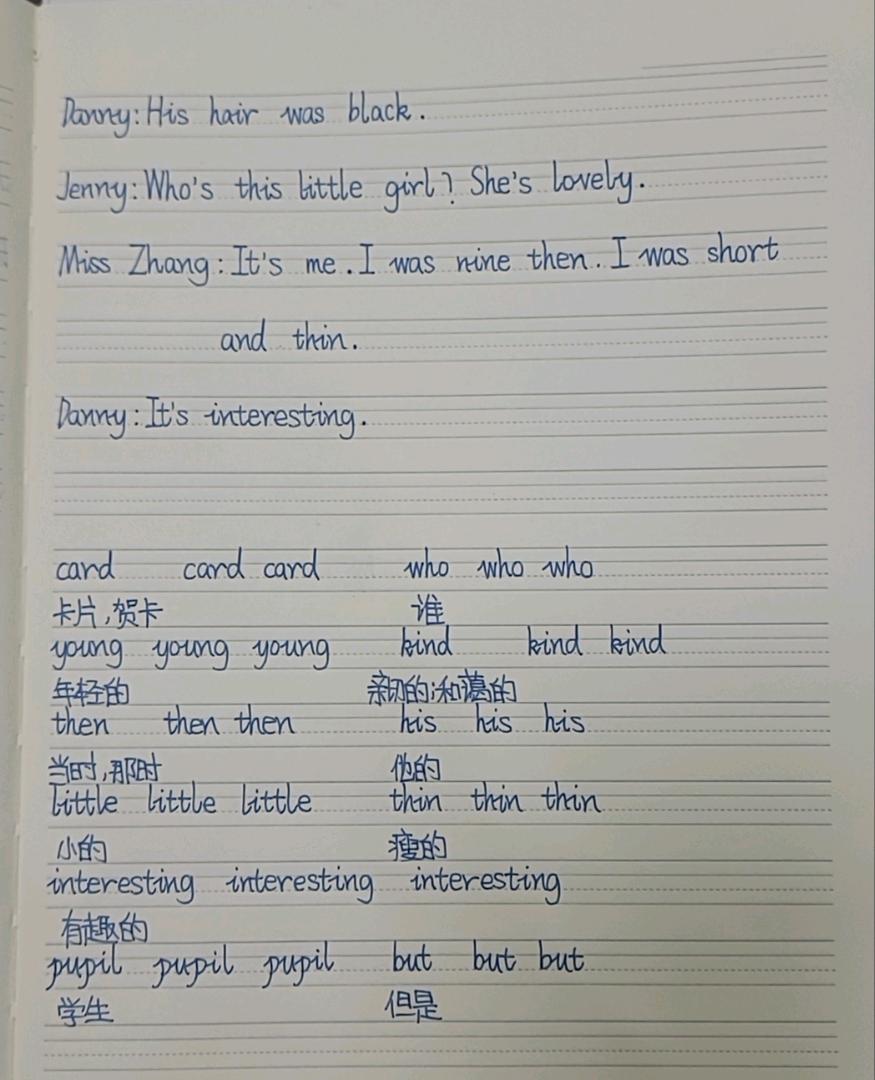 Danny: His hair was black.
Jenny: Who's this little girl? She's lovely.
Miss Zhang: It's me. I was nine then. I was short
and thin.
Danny: It's interesting.
card card card who who who
卡片,贺卡 谁
young young young kind kind kind
年轻的 亲切的;和蔼的
then then then his his his
当时,那时 他的
little little little thin thin thin
小的 瘦的
interesting interesting interesting
有趣的
pupil pupil pupil but but but
学生 但是